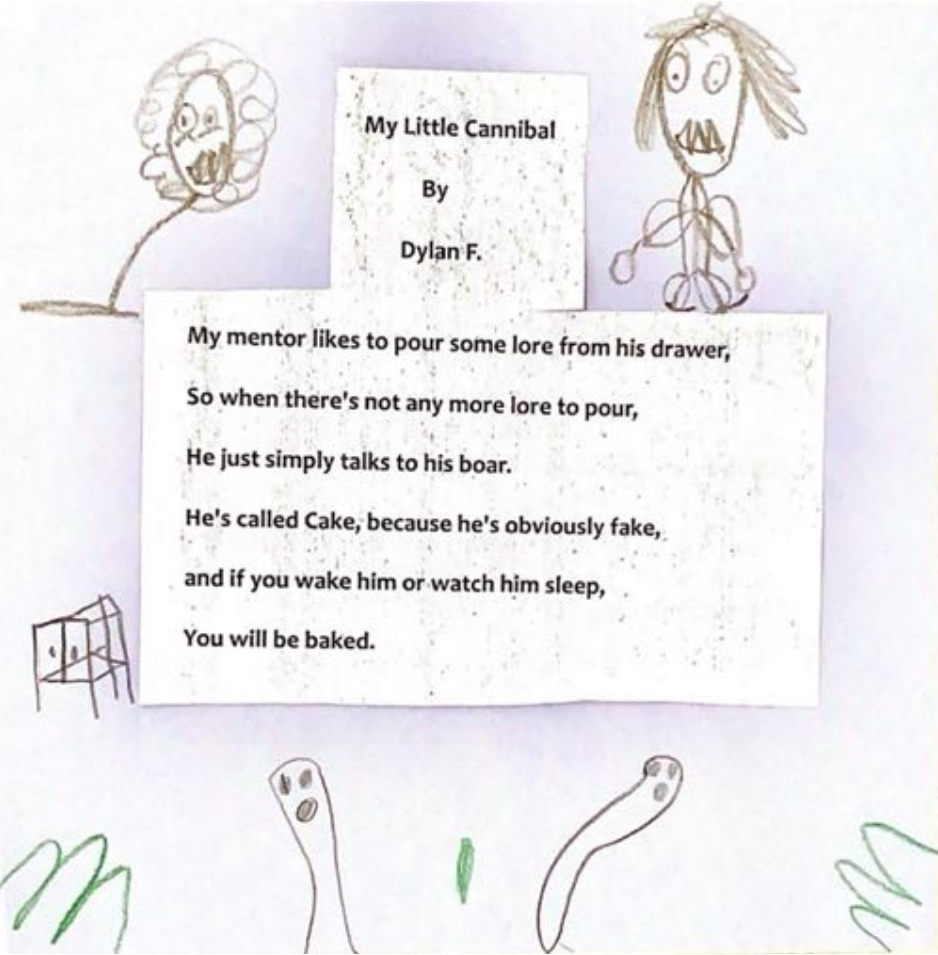 My Little Cannibal
By
Dylan F.
My mentor likes to pour some lore from his drawer,
So when there's not any more lore to pour,
He just simply talks to his boar.
He's called Cake, because he's obviously fake,
and if you wake him or watch him sleep,
You will be baked.